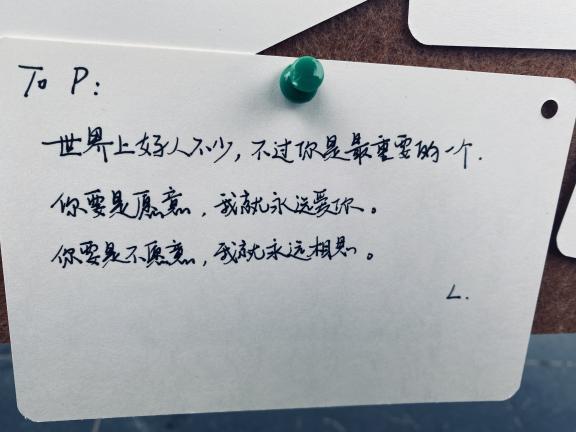 To P:
世界上好人不少，不过你是最重要的一个.
你要是愿意，我就永远爱你。
你要是不愿意，我就永远相思。
L.